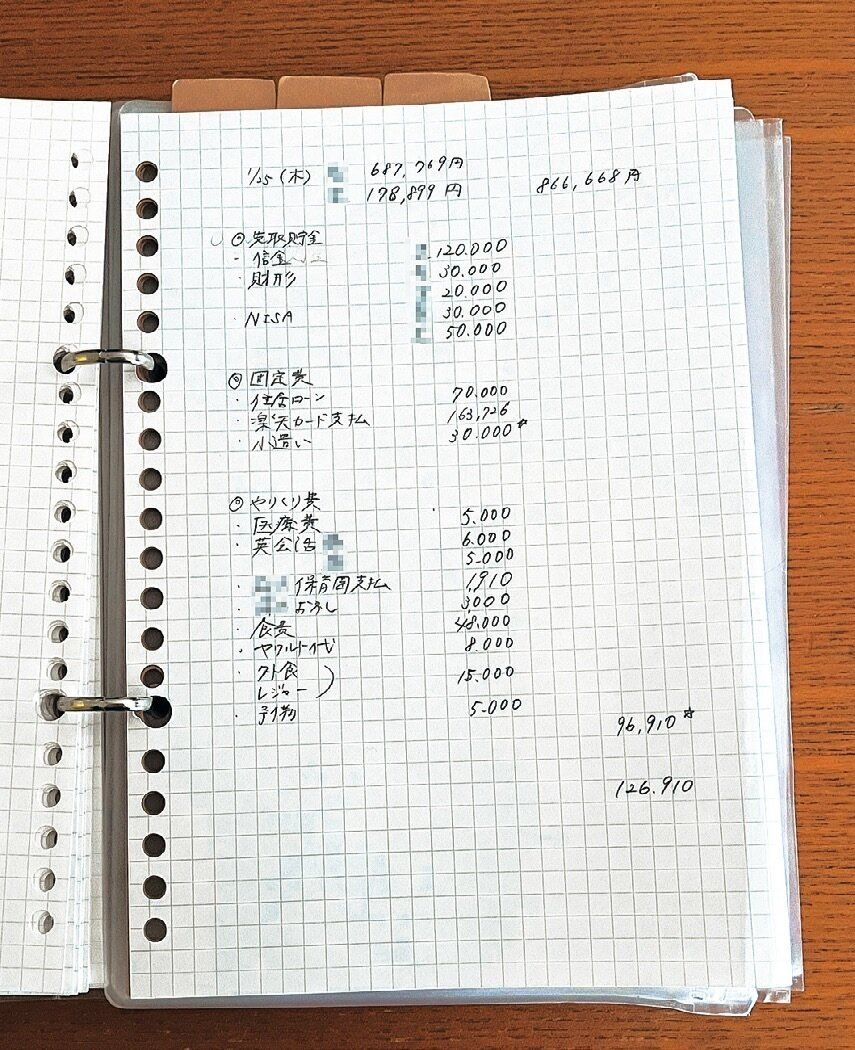 1/25(木) 687,769円
178,899円 866,668円
◎先取貯金
・信金 120.000
・財形 30.000
20.000
・NISA 30.000
50.000
◎固定費
・住宅ローン 70.000
・楽天カード支払 163,726
・小遣い 30.000☆
◎やりくり費
・医療費 5.000
・英会話 6.000
5.000
・保育園支払 1,910
・おふし 3,000
・食費 48,000
・ヤクルト代 8.000
・外食
レジャー) 15.000
・予備 5.000
96,910☆
126.910